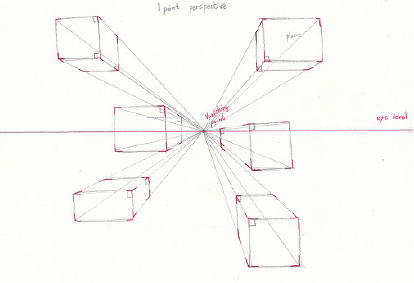 1 point perspective
plane
Vanishing
point
eye level